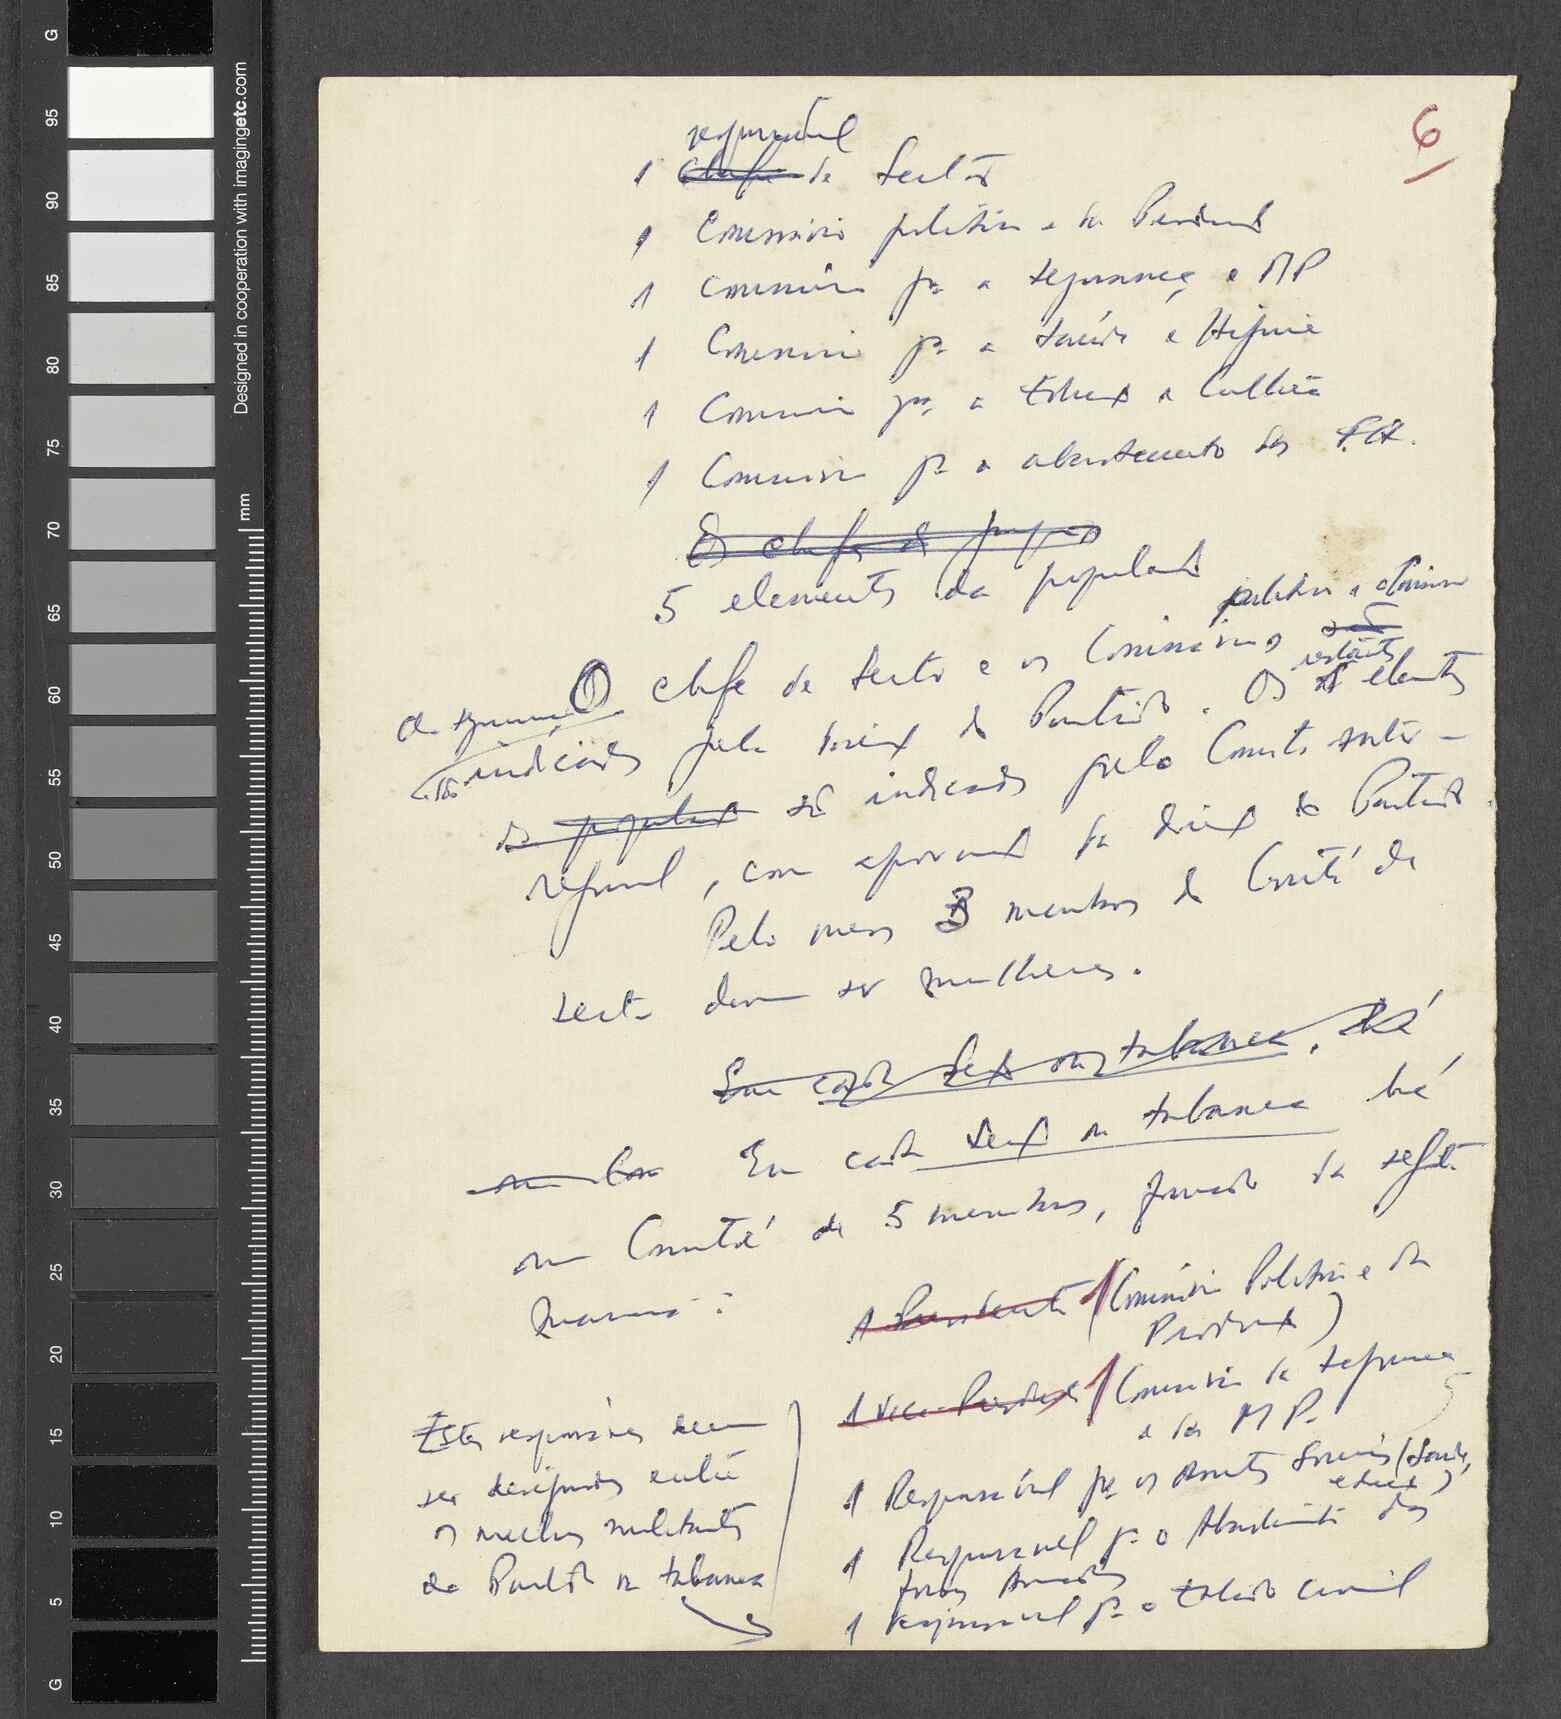 6
responsável
1 Chefe de Sector
1 Comissário político e da Produção
1 Comissário pa a segurança e MP
1 Comissário pa a Saúde e Higiene
1 Comissário pa a Educ. e Cultura
1 Comissário pa o abastecimento das F.A.
Os chefes de grupos
5 elementos da população
político e
O chefe de Sector e os Comissários são
restantes
da segurança
são indicados pela direcç do Partido. Os elementos
da população são indicados pelo Comité inter-
regional, com aprovação da direcç do Partido.
Pelo menos 3 membros do Comité de
sector devem ser mulheres.
Em cada Secç ou tabanca, há
um Com Em cada Secç ou tabanca há
um Comité de 5 membros, formado da seguinte
maneira:
1 Presidente (Comissário Político e da
Produção)
1 Vice-Presidente (Comissário da Segurança
e da MP.
1 Responsável pa os Assuntos Sociais (Saúde,
educ)
1 Responsável pa o Abastecimento das
Forças Armadas
1 responsável pa o Estado Civil
Estes responsáveis devem
ser designados entre
os melhores militantes
do Partido na tabanca
G
95
90
85
80
75
70
65
60
55
50
45
40
35
30
25
20
15
10
5
G
Designed in cooperation with imagingetc.com
mm